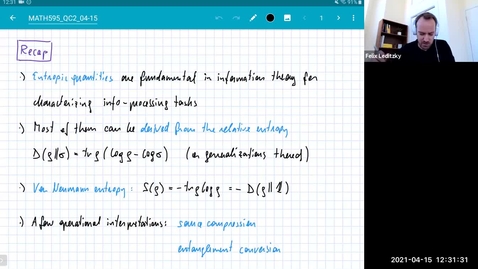 12:31
MATH595_QC2_04-15
1
Recap
·) Entropic quantities are fundamental in information theory for
characterizing info-processing tasks
·) Most of them can be derived from the relative entropy
D(ρ‖σ) = tr ρ (log ρ - log σ) (or generalizations thereof)
·) Von Neumann entropy: S(ρ) = - tr ρ log ρ = - D(ρ‖𝟙)
·) A few operational interpretations: source compression
entanglement conversion
Felix Leditzky
2021-04-15 12:31:31